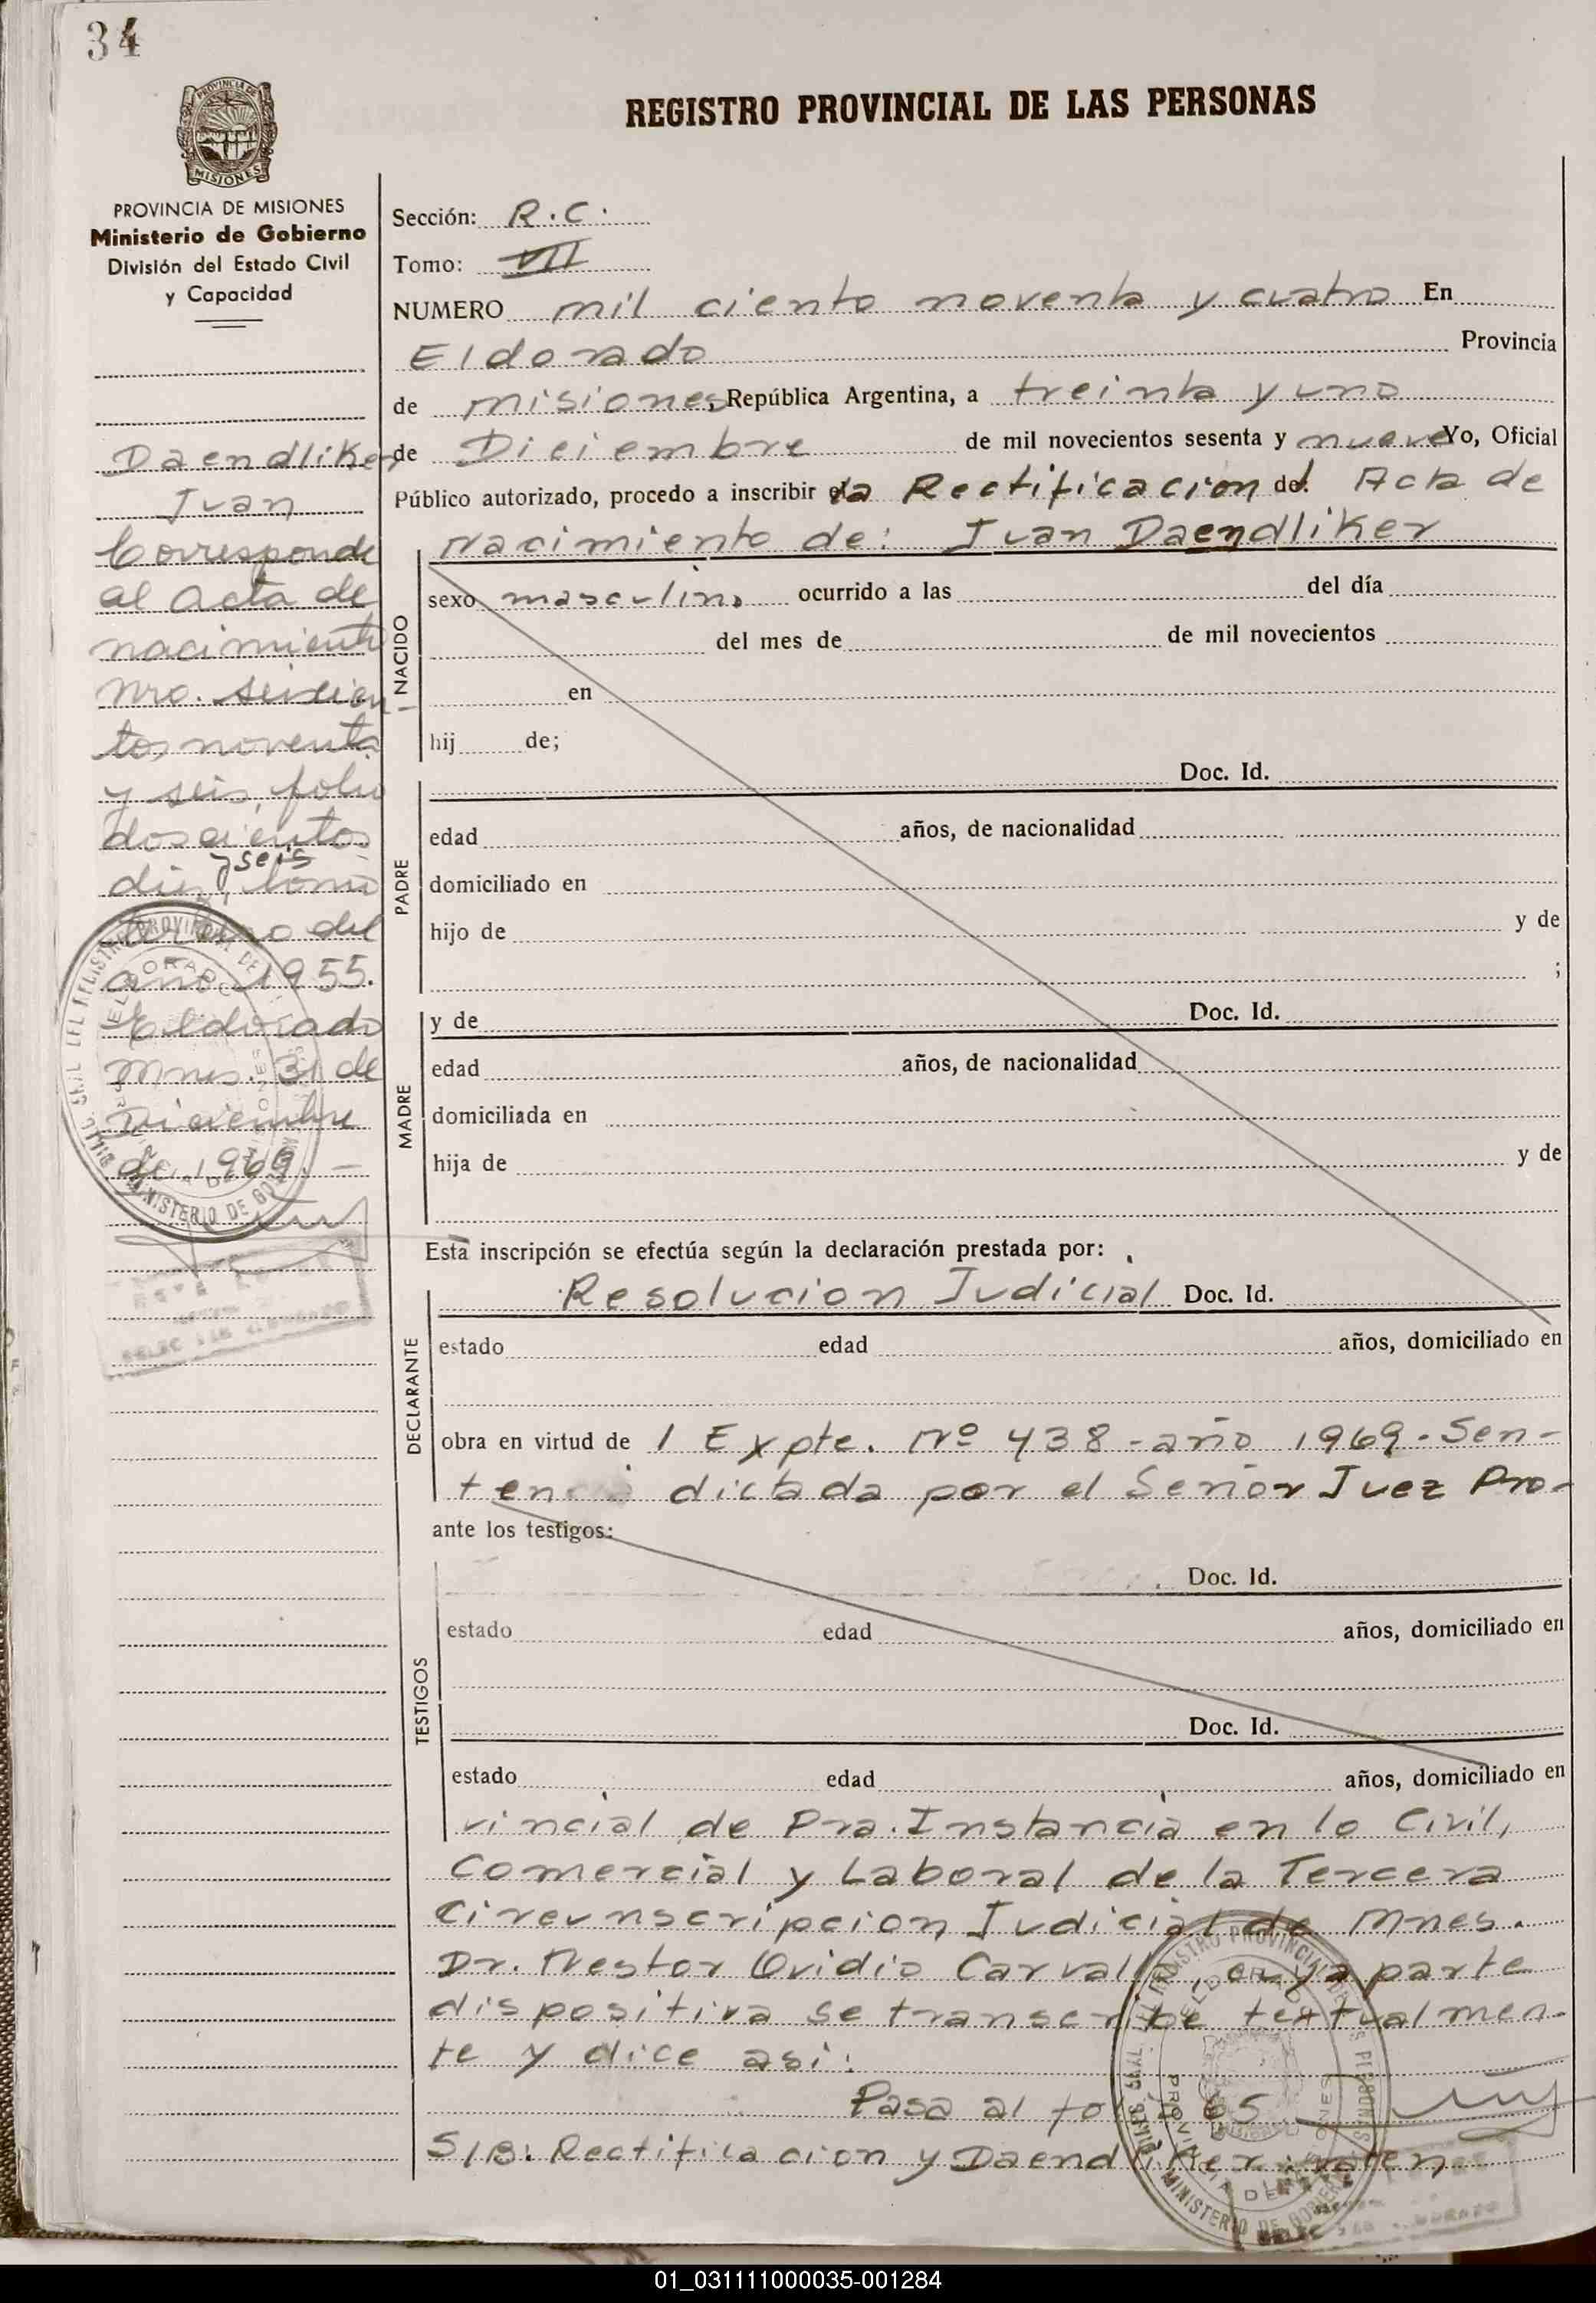 34
REGISTRO PROVINCIAL DE LAS PERSONAS
PROVINCIA DE
MISIONES
PROVINCIA DE MISIONES
Ministerio de Gobierno
División del Estado Civil
y Capacidad
Daendliker
Ivan
Corresponde
al acta de
nacimiento
nro. seiscien-
tos noventa
y seis, folio
doscientos
y seis
diez, tomo
del
año 1955.
Eldorado
Mnes. 31 de
Diciembre
de 1969. —
Sección: R.C.
Tomo: VII
NUMERO mil ciento noventa y cuatro En
Eldorado Provincia
de Misiones, República Argentina, a treinta y uno
de Diciembre de mil novecientos sesenta y nueve Yo, Oficial
Público autorizado, procedo a inscribir la Rectificación del Acta de
Nacimiento de: Ivan Daendliker
NACIDO
sexo masculino ocurrido a las del día
del mes de de mil novecientos
en
hij de;
Doc. Id.
PADRE
edad años, de nacionalidad
domiciliado en
hijo de y de
;
y de Doc. Id.
MADRE
edad años, de nacionalidad
domiciliada en
hija de y de
Esta inscripción se efectúa según la declaración prestada por:
Resolucion Judicial Doc. Id.
DECLARANTE
estado edad años, domiciliado en
obra en virtud de / Expte. Nº 438 - año 1969 - Sen-
tencia dictada por el Señor Juez Pro-
ante los testigos:
Doc. Id.
TESTIGOS
estado edad años, domiciliado en
Doc. Id.
estado edad años, domiciliado en
vincial de Pra. Instancia en lo Civil,
Comercial y Laboral de la Tercera
Circunscripcion Judicial de Mnes.
Dr. Nestor Ovidio Carvallo, cuya parte
dispositiva se transcribe textualmen-
te y dice asi:
Pasa al fol
S/B: Rectificacion y Daendliker: valen
01_031111000035-001284